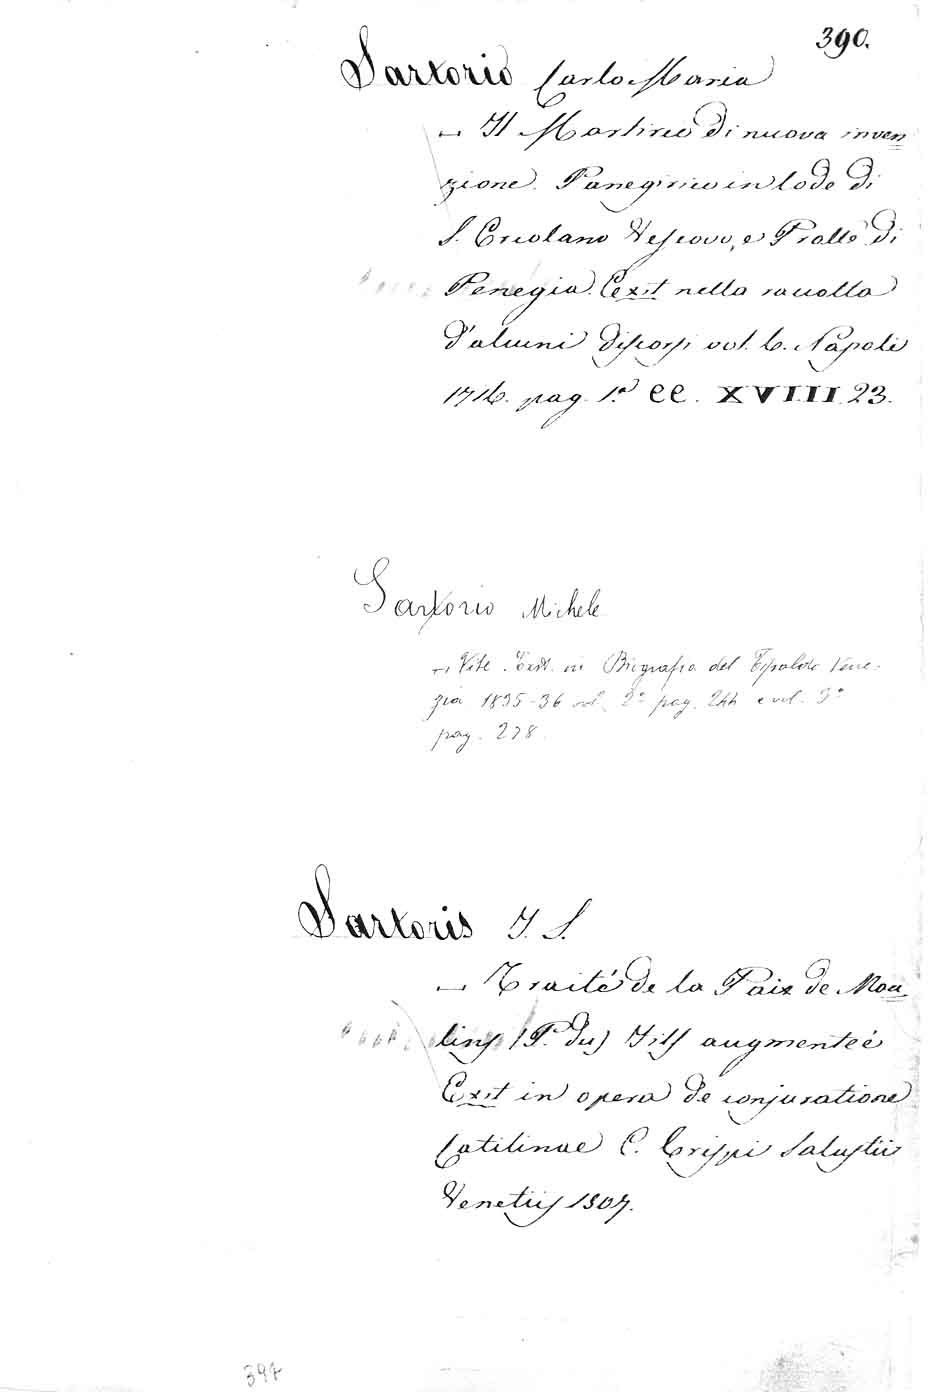 390.
Sartorio Carlo Maria
— Il Martirio di nuova inven=
zione. Panegirico in lode di
S. Ercolano Vescovo, e Prottê di
Perugia. Exst nella raccolta
d'alcuni discorsi vol. 6. Napoli
1716. pag. 1.a CC. XVIII 23.
Sartorio Michele
— Vite. Exst. in Biografia del Tipaldo Vene-
zia 1835-36 vol. 2° pag. 244 e vol. 3°
pag. 278.
Sartoris J. S.
— Traité de la Paix de Mou=
lins (P. du) augmenteé
Exst in opera de conjuratione
Catilinae C. Crispi Salustii
Venetiis 1807.
397